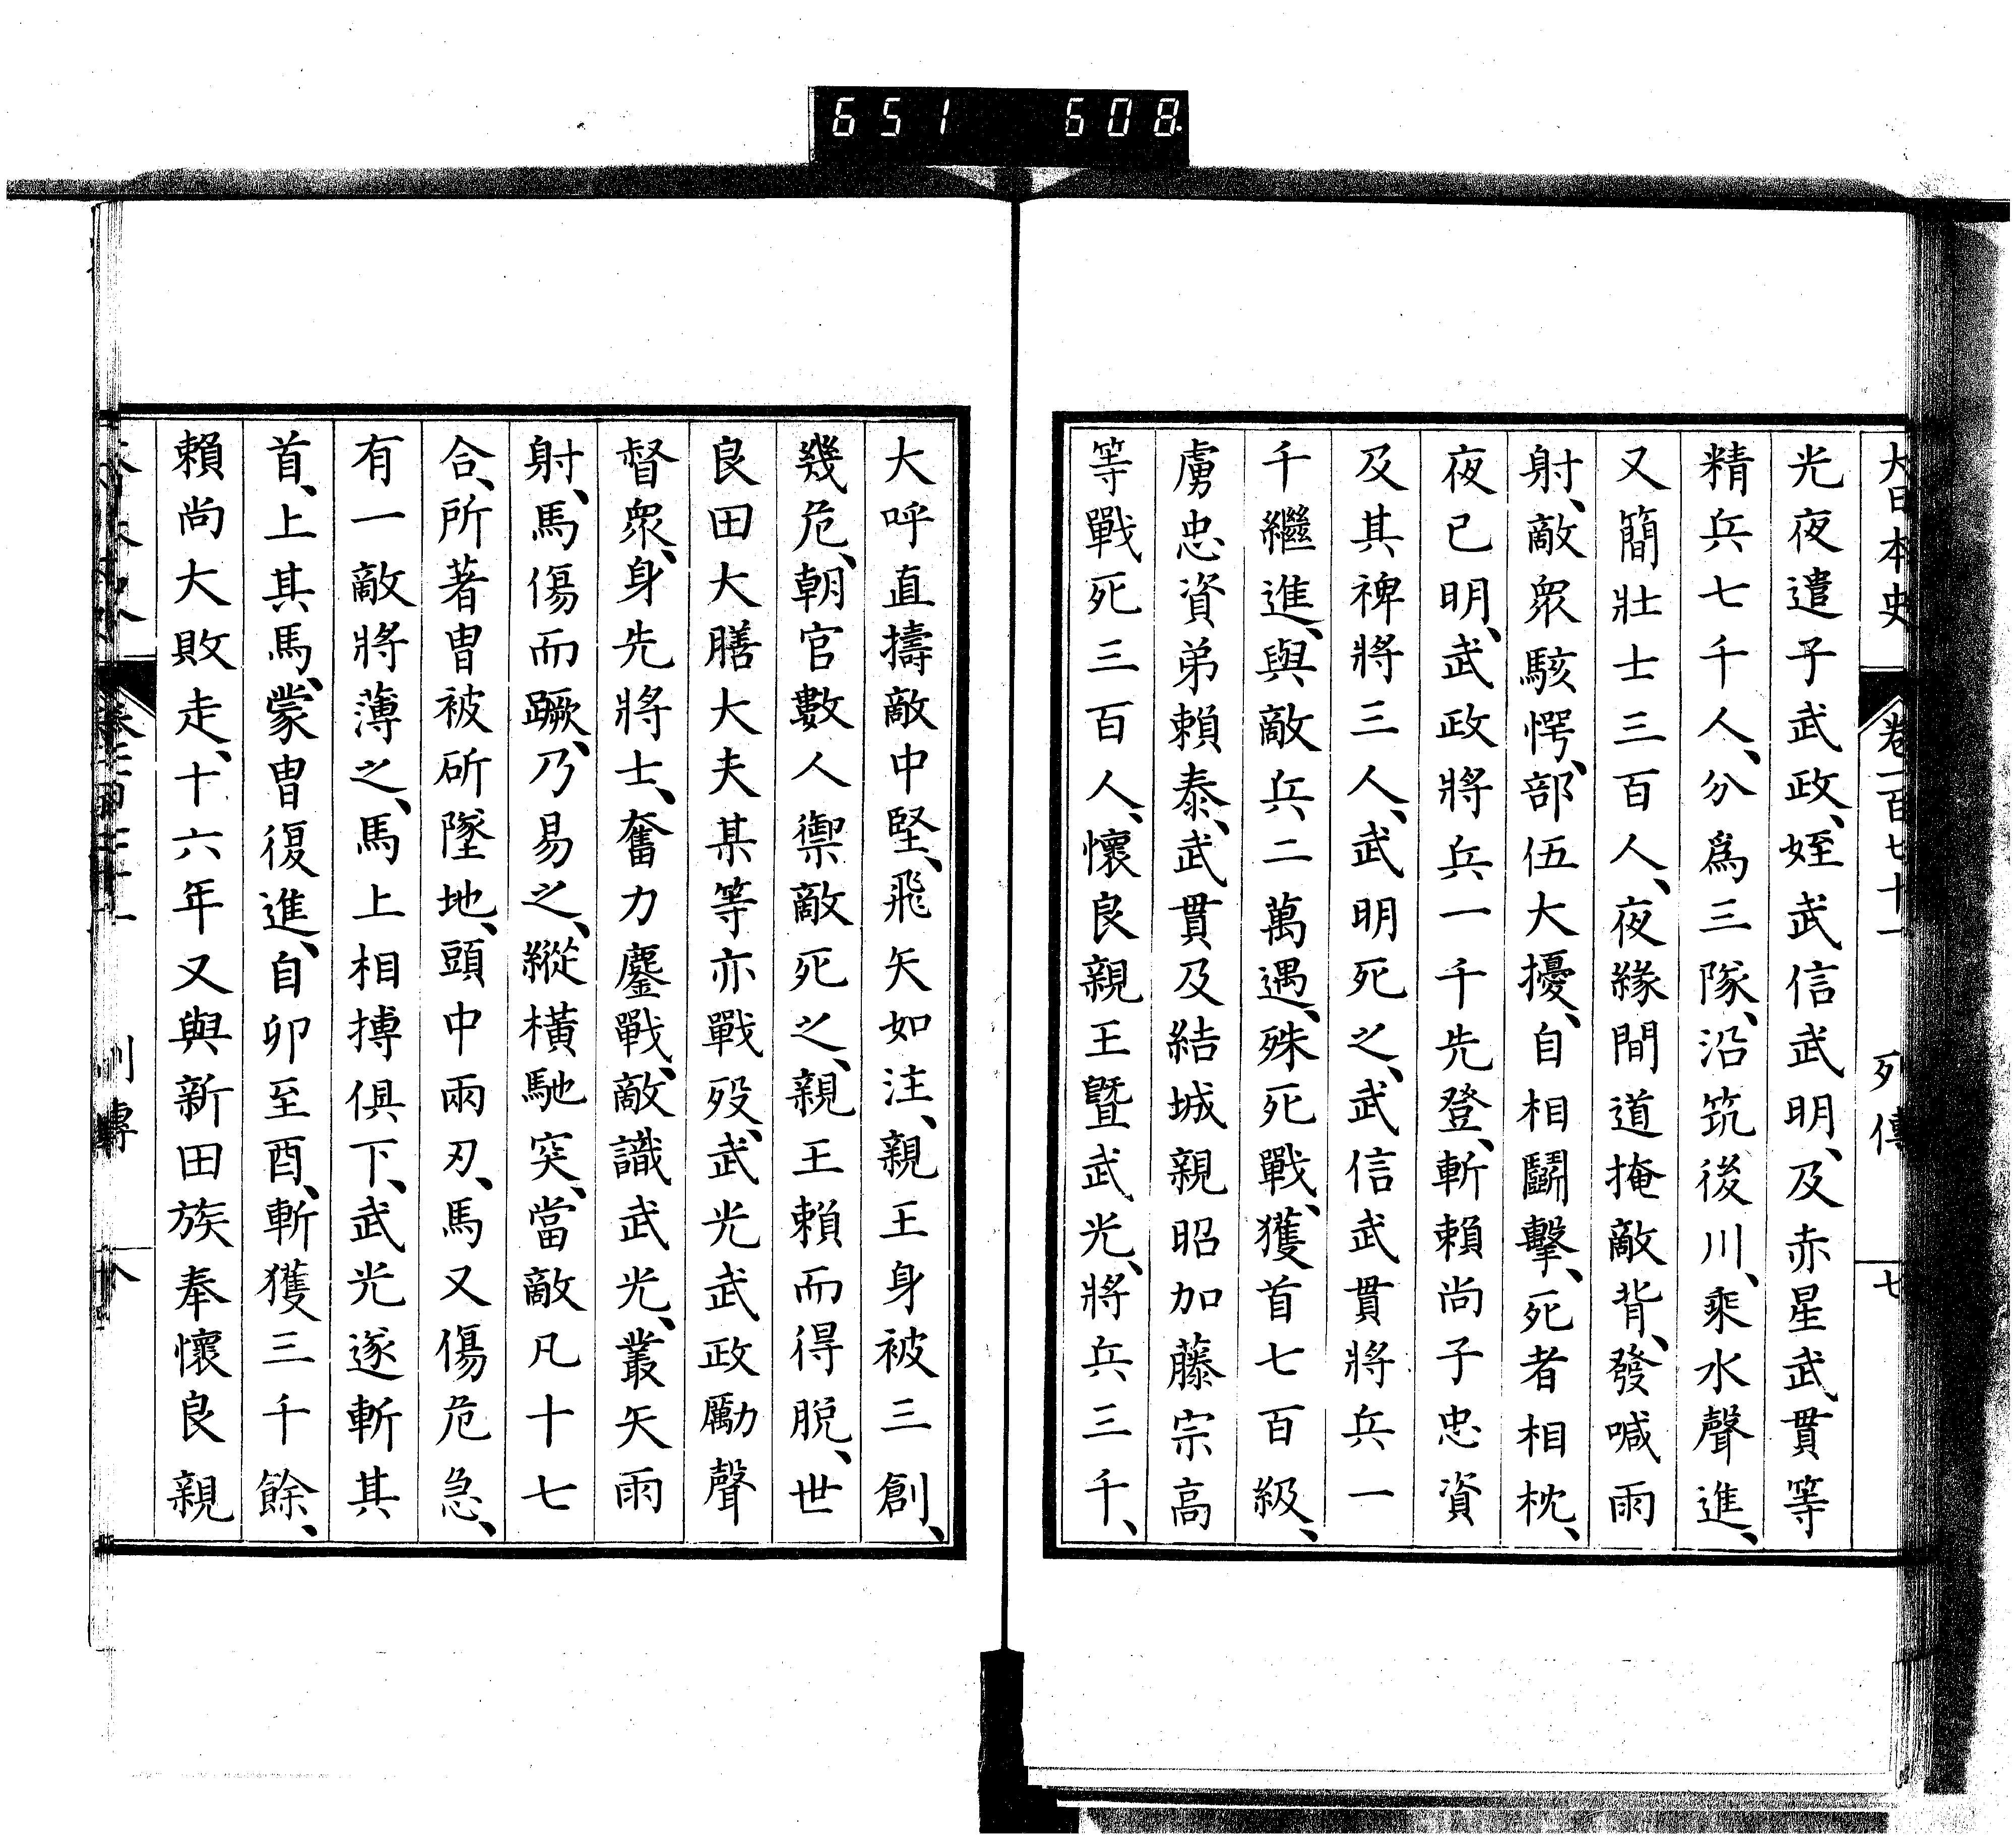 651 608
大日本史 卷一百七十一 列傳 七
光夜遣子武政、姪武信武明、及赤星武貫等
精兵七千人、分爲三隊、沿筑後川、乘水聲進、
又簡壯士三百人、夜緣間道掩敵背、發喊雨
射、敵衆駭愕、部伍大擾、自相鬬擊、死者相枕、
夜已明、武政將兵一千先登、斬賴尚子忠資
及其裨將三人、武明死之、武信武貫將兵一
千繼進、與敵兵二萬遇、殊死戰、獲首七百級、
虜忠資弟賴泰、武貫及結城親昭加藤宗高
等戰死三百人、懷良親王暨武光、將兵三千、
大呼直擣敵中堅、飛矢如注、親王身被三創、
幾危、朝官數人禦敵死之、親王賴而得脫、世
良田大膳大夫某等亦戰歿、武光武政勵聲
督衆、身先將士、奮力鏖戰、敵識武光、叢矢雨
射、馬傷而蹶、乃易之、縱橫馳突、當敵凡十七
合、所著冑被斫墜地、頭中兩刃、馬又傷危急、
有一敵將薄之、馬上相搏俱下、武光遂斬其
首、上其馬、蒙冑復進、自卯至酉、斬獲三千餘、
賴尚大敗走、十六年又與新田族奉懷良親